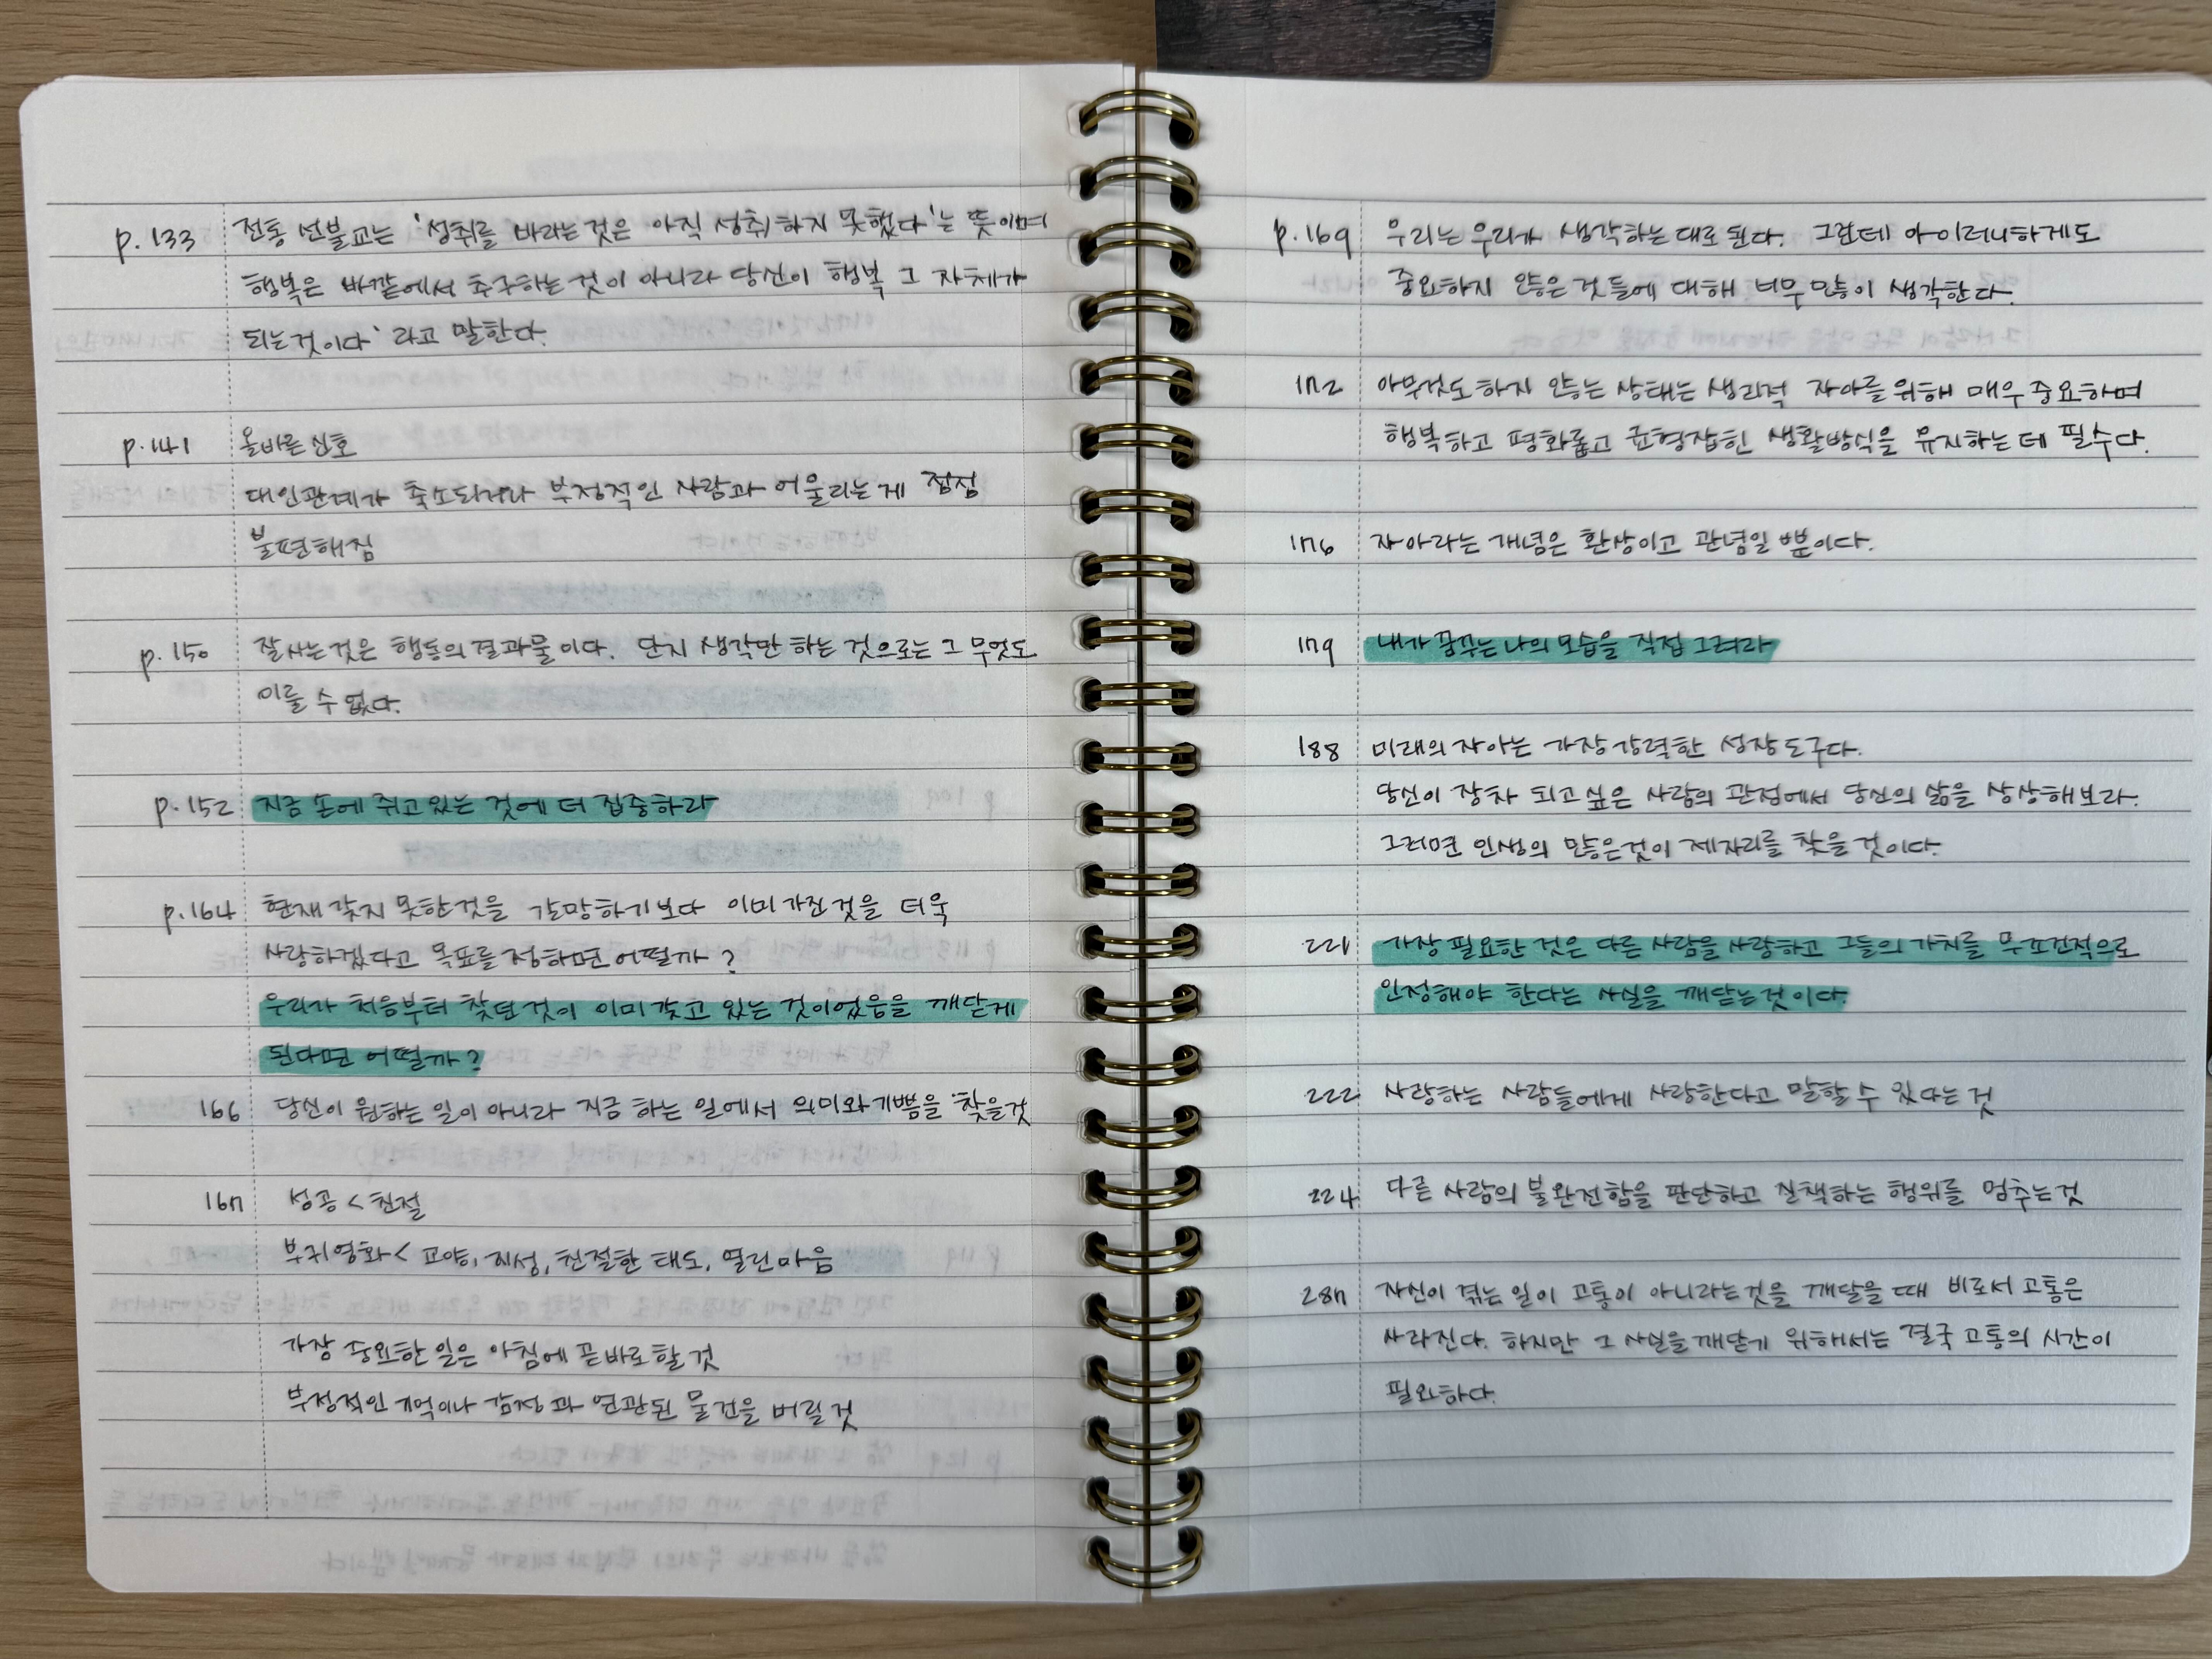 p.133 전통 선불교는 '성취를 바라는 것은 아직 성취하지 못했다'는 뜻이며
행복은 바깥에서 추구하는 것이 아니라 당신이 행복 그 자체가
되는 것이다' 라고 말한다.
p.141 올바른 신호
대인관계가 축소되거나 부정적인 사람과 어울리는 게 점점
불편해짐
p.150 잘 사는 것은 행동의 결과물이다. 단지 생각만 하는 것으로는 그 무엇도
이룰 수 없다.
p.152 지금 손에 쥐고 있는 것에 더 집중하라
p.164 현재 갖지 못한 것을 갈망하기보다 이미 가진 것을 더욱
사랑하겠다고 목표를 정하면 어떨까?
우리가 처음부터 찾던 것이 이미 갖고 있는 것이었음을 깨닫게
된다면 어떨까?
166 당신이 원하는 일이 아니라 지금 하는 일에서 의미와 기쁨을 찾을 것
167 성공 < 친절
부귀영화 < 교양, 지성, 친절한 태도, 열린 마음
가장 중요한 일은 아침에 곧바로 할 것
부정적인 기억이나 감정과 연관된 물건을 버릴 것
p.169 우리는 우리가 생각하는 대로 된다. 그런데 아이러니하게도
중요하지 않은 것들에 대해 너무 많이 생각한다.
172 아무것도 하지 않는 상태는 생리적 자아를 위해 매우 중요하며
행복하고 평화롭고 균형잡힌 생활방식을 유지하는 데 필수다.
176 자아라는 개념은 환상이고 관념일 뿐이다.
179 내가 꿈꾸는 나의 모습을 직접 그려라
188 미래의 자아는 가장 강력한 성장도구다.
당신이 장차 되고 싶은 사람의 관점에서 당신의 삶을 상상해보라.
그러면 인생의 많은 것이 제자리를 찾을 것이다.
221 가장 필요한 것은 다른 사람을 사랑하고 그들의 가치를 무조건적으로
인정해야 한다는 사실을 깨닫는 것이다.
222 사랑하는 사람들에게 사랑한다고 말할 수 있다는 것
224 다른 사람의 불완전함을 판단하고 질책하는 행위를 멈추는 것
287 자신이 겪는 일이 고통이 아니라는 것을 깨달을 때 비로서 고통은
사라진다. 하지만 그 사실을 깨닫기 위해서는 결국 고통의 시간이
필요하다.